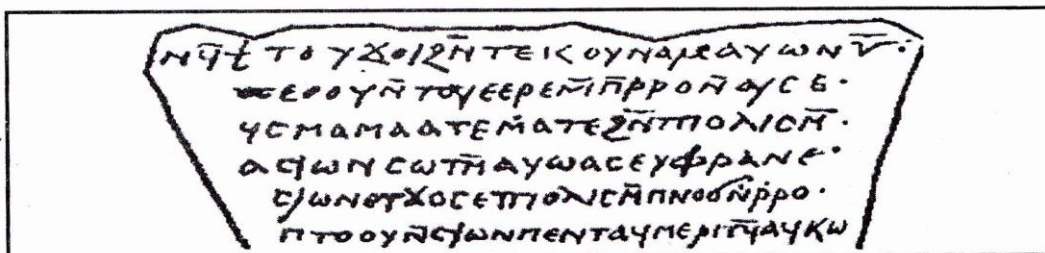 ⲛϥ̄ϯ ⲧⲟⲩϫⲟⲓϩⲛ̄ⲧⲉⲕⲟⲩⲛⲁⲙⲁⲩⲱⲛ ⲅ̄·
ⲉϩⲟⲩⲛ̄ⲧⲟⲩⲉⲉⲣⲉⲙ̄ⲡ̄ⲣⲣⲟⲛ̄ⲟⲩⲥⲉ·
ϥⲥⲙⲁⲙⲁⲁⲧⲉⲙⲁⲧⲉϩⲛ̄ⲧⲡⲟⲗⲓⲥⲙ̄·
ⲁⲥⲓⲱⲛⲥⲱⲧⲙ̄ⲁⲩⲱⲁⲥⲉⲩⲫⲣⲁⲛⲉ·
ⲥⲓⲱⲛⲉⲧϫⲟⲥⲉⲧⲡⲟⲗⲓⲥⲙ̄ⲡⲛⲟϭⲛ̄ⲣ̄ⲣⲟ·
ⲡⲧⲟⲟⲩⲛ̄ⲥⲓⲱⲛⲡⲉⲛⲧⲁϥⲙⲉⲣⲓⲧϥ̄ⲁϥⲕⲱ